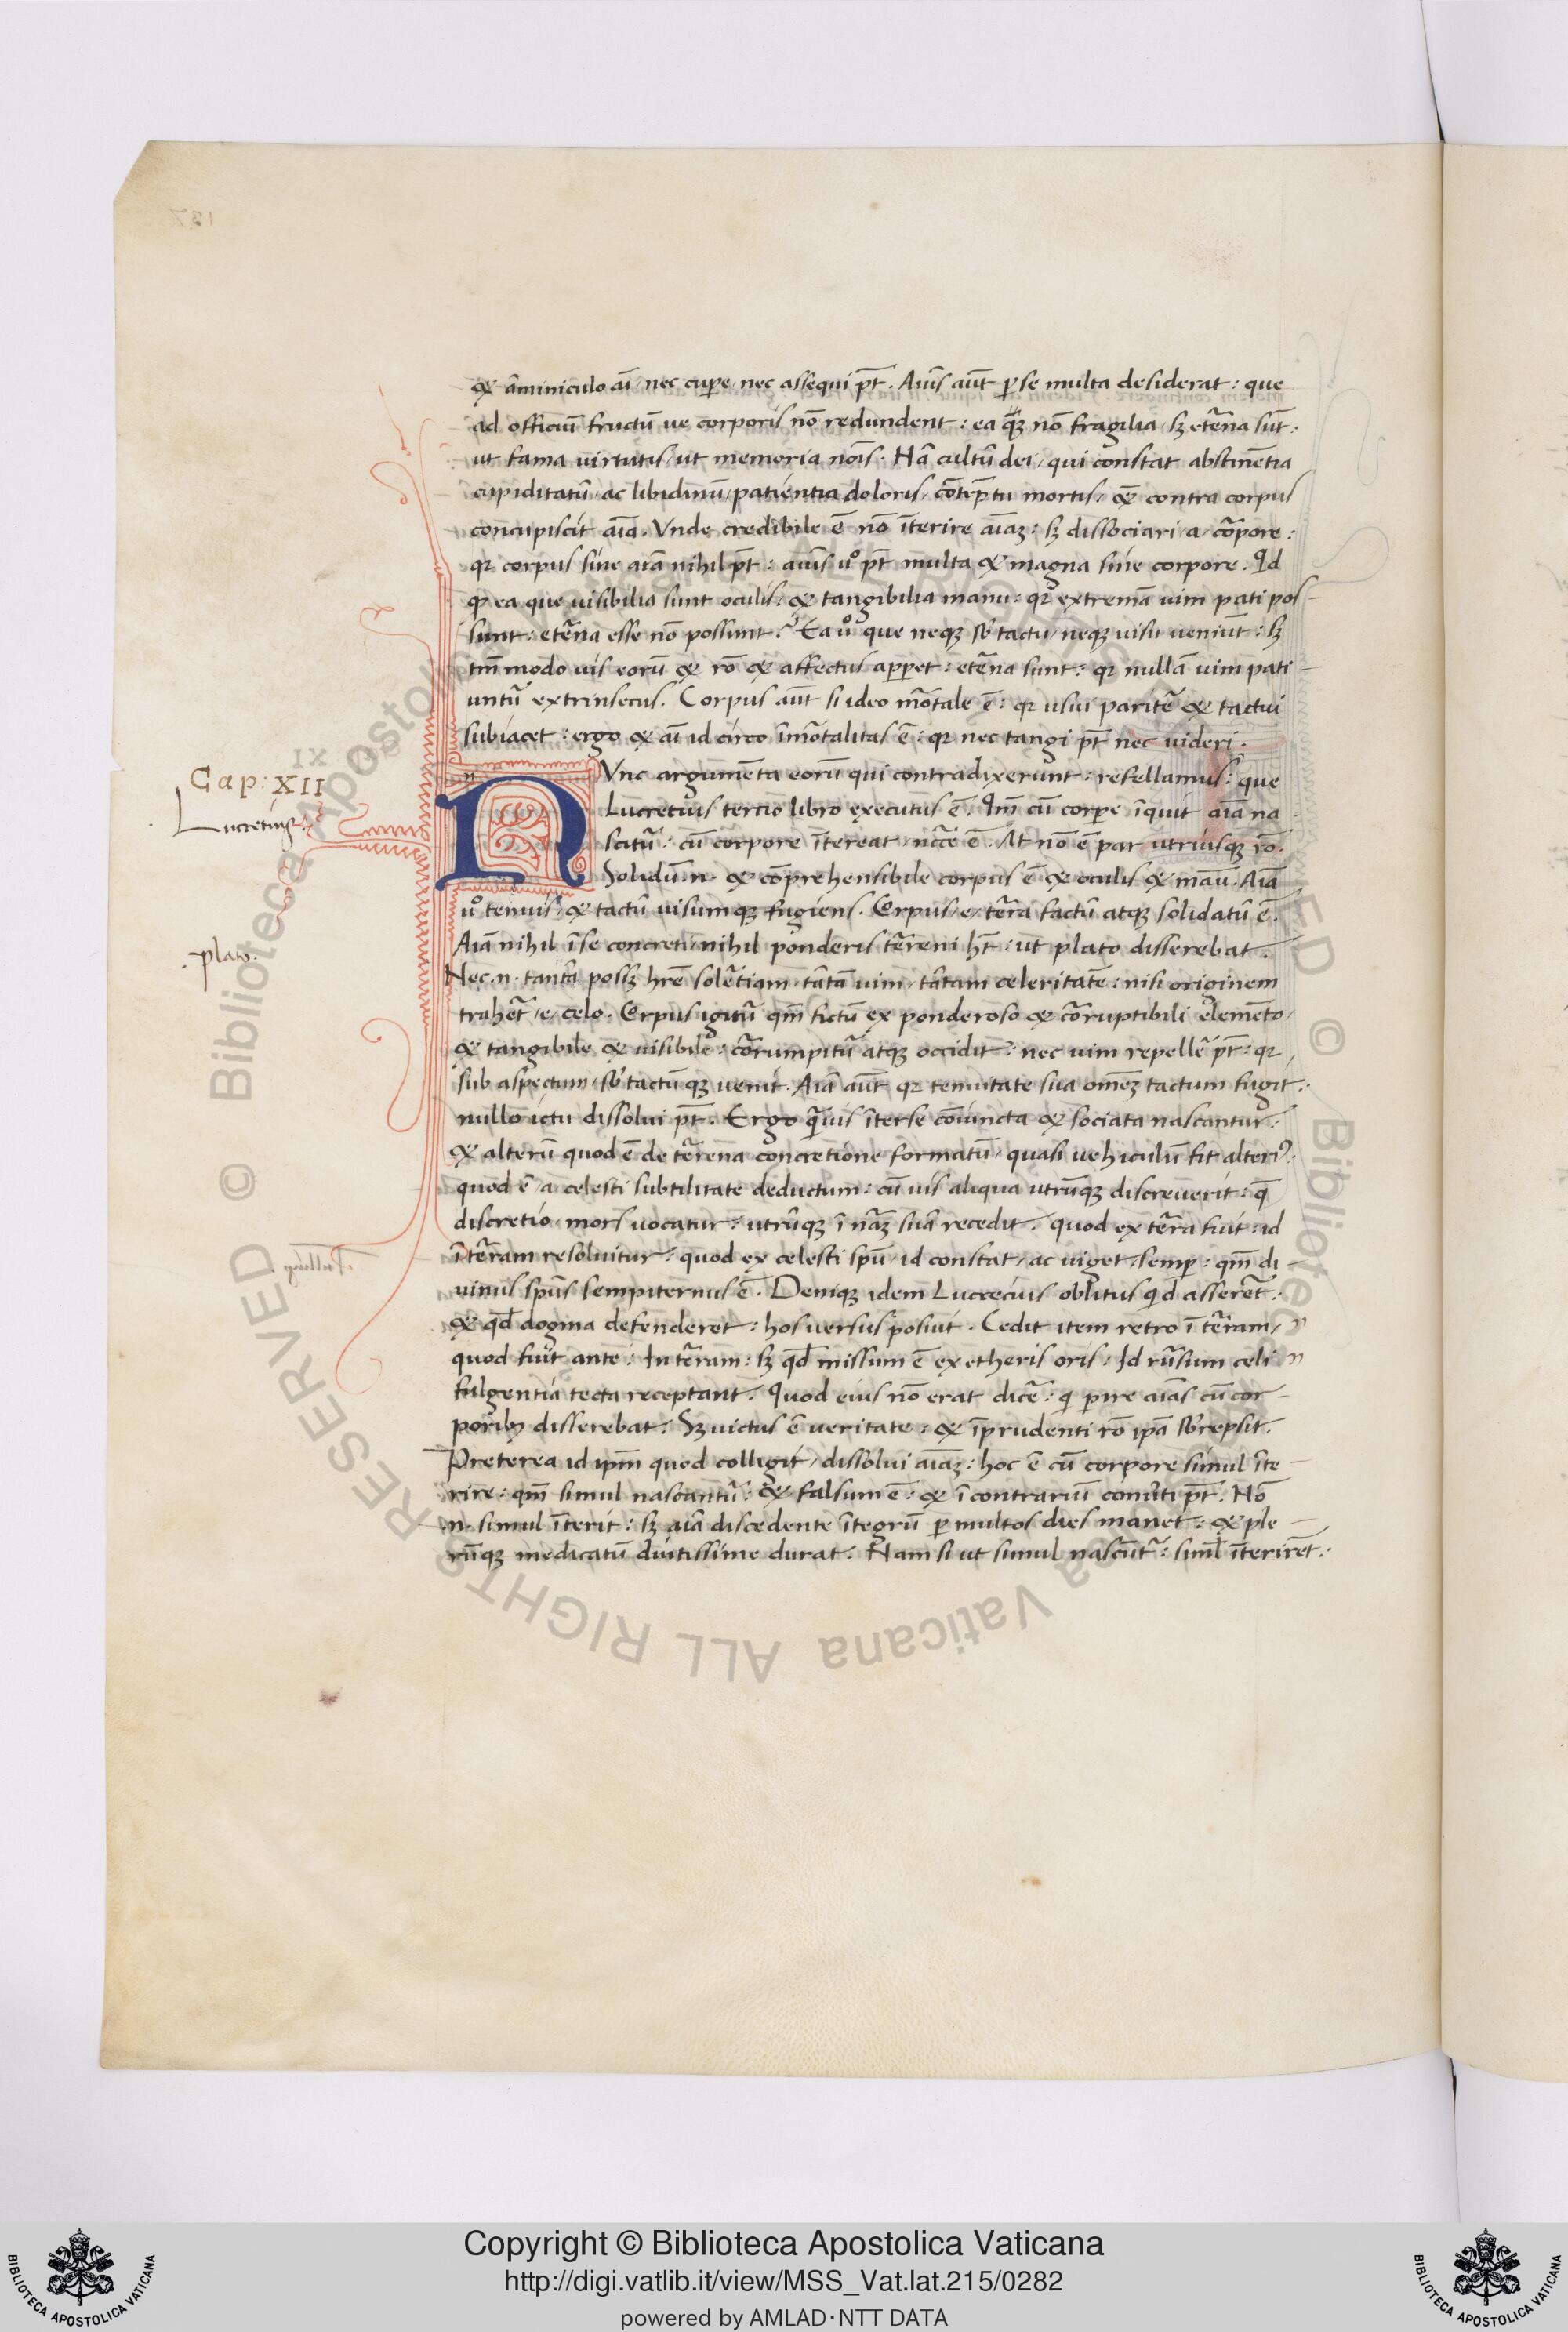 & aminiculo aī nec cupe nec assequi pt̄. Aīus aūt p se multa desiderat: que
ad officiū fructū ue corporis nō redundent: ea q̄ȝ nō fragilia sȝ et̄na sūt:
ut fama virtutis, ut memoria noīs. Nā cultū dei, qui constat abstinētia
cupiditatū, ac libidinū, patientia doloris, cōtēptu mortis, & contra corpus
concupiscit aīa. Vnde credibile ē nō īterire aīaȝ: sȝ dissociari a corpore:
qꝛ corpus sine aīa nihil pt̄: aīus uº pt̄ multa & magna sine corpore. Qd
qꝫ ea que uisibilia sunt oculis, & tangibilia manu: qꝛ extremā uim pati pos
sunt: et̄na esse nō possunt. Ea uº que neqȝ sb tactu, neqȝ uisu ueniūt: sȝ
tm̄ modo uis eorū & rō & affectus appet: et̄na sunt: qꝛ nullā uim pati
untū extrinsecus. Corpus aūt si ideo mōtale ē: qꝛ usui parit̄ & tactui
subiacet: ergo & aī id circo īmōtalitas ē: qꝛ nec tangi pt̄ nec uideri.
Cap: XII
NVnc argumēta eorū qui contradixerunt: refellamus: que
Lucretius
Lucretius tercio libro executus ē. Qm̄ cū corpe īquit aīa na
scitū: cū corpore īntereat ncc̄e ē. At nō ē par utriusqȝ rō.
Solidū.n. & cōprehensibile corpus ē & oculis & manū. Aīa
uº tenuis: & tactū uisumqȝ fugiens. Corpus, e, t̄ra factū atqȝ solidatū ē.
plato.
Aīa nihil ī se concreti, nihil ponderis t̄reni ht̄: ut plato disserebat.
Nec.n. tantā possȝ hr̄e sol̄tiam, tātā uim, tātam celeritatē: nisi originem
trahēt, e, celo. Corpus igitū qm̄ fictū ex ponderoso & cōruptibili elemēto,
& tangibile & uisibile: cōrumpitū atqȝ occidit: nec uim repell̄ pt̄: qꝛ
sub aspectum, sb tactūqȝ uenit. Aīa aūt qꝛ tenuitate sua omēȝ tactum fugit:
nullo ictu dissolui pt̄. Ergo q̄uis īterse cōiuncta & sociata nascantur:
& alterū quod ē de t̄rena concretione formatū, quasi uehiculū sit alteri9:
quod ē, a celesti subtilitate deductum: cū uis aliqua utrūqȝ discreuerit: q̄
discretio, mors uocatur: utrūqȝ ī nāȝ suā recedit. quod ex t̄ra fuit: id
ī t̄ram resoluitur: quod ex celesti spū, id constat, ac uiget, semp: qm̄ di
uinus sp̄us sempiternus ē. Deniqȝ idem Lucrecius oblitus qd asseret̄:
& qd̄ dogma defenderet: hos uersus posuit. Cedit item retro ī t̄ram,
quod fuit ante: In t̄ram: sȝ qd̄ missum ē ex etheris oris: Id rūsum celi
fulgentia tecta receptant. Quod eius nō erat dic̄e: qi pire aīas cū cor
poribȝ disserebat: Sȝ uictus ē ueritate: & īprudenti rō ip̄a sb repsit.
Preterea id ipm̄ quod colligit, dissolui aīaȝ: hoc ē cū corpore simul īte
rire: qm̄ simul nascantū: & falsum ē: & ī contrariū conūti pt̄. Nō
.n. simul īterit: sȝ aīa discedente ītegrū p multos dies manet: & ple
rūqȝ medicatū diutissime durat: Nam si ut simul nascūt̄: siml̄ īterirēt:
Copyright © Biblioteca Apostolica Vaticana
http://digi.vatlib.it/view/MSS_Vat.lat.215/0282
powered by AMLAD·NTT DATA